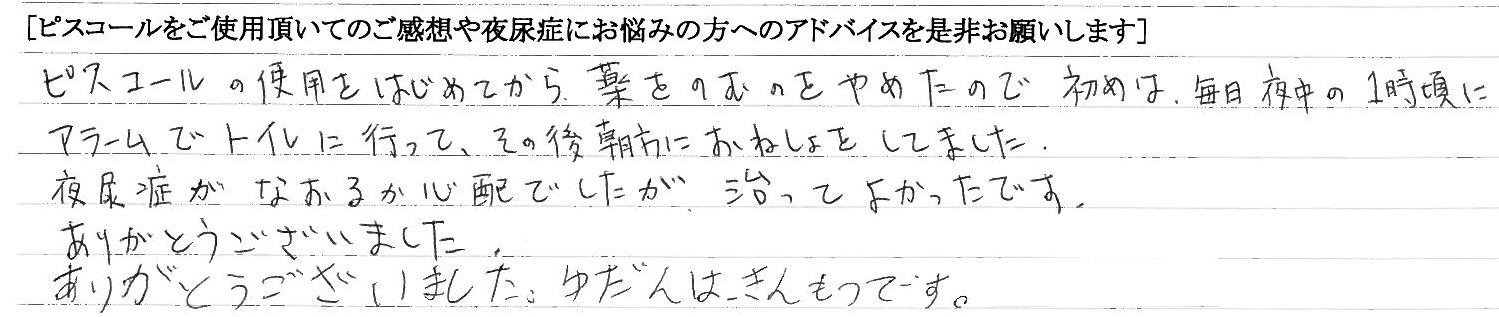 [ピスコールをご使用頂いてのご感想や夜尿症にお悩みの方へのアドバイスを是非お願いします]
ピスコールの使用をはじめてから、薬をのむのをやめたので 初めは、毎日夜中の1時頃に
アラームでトイレに行って、その後朝方におねしょをしてました.
夜尿症がなおるか心配でしたが、治ってよかったです.
ありがとうございました.
ありがとうございました。ゆだんは、きんもつです。